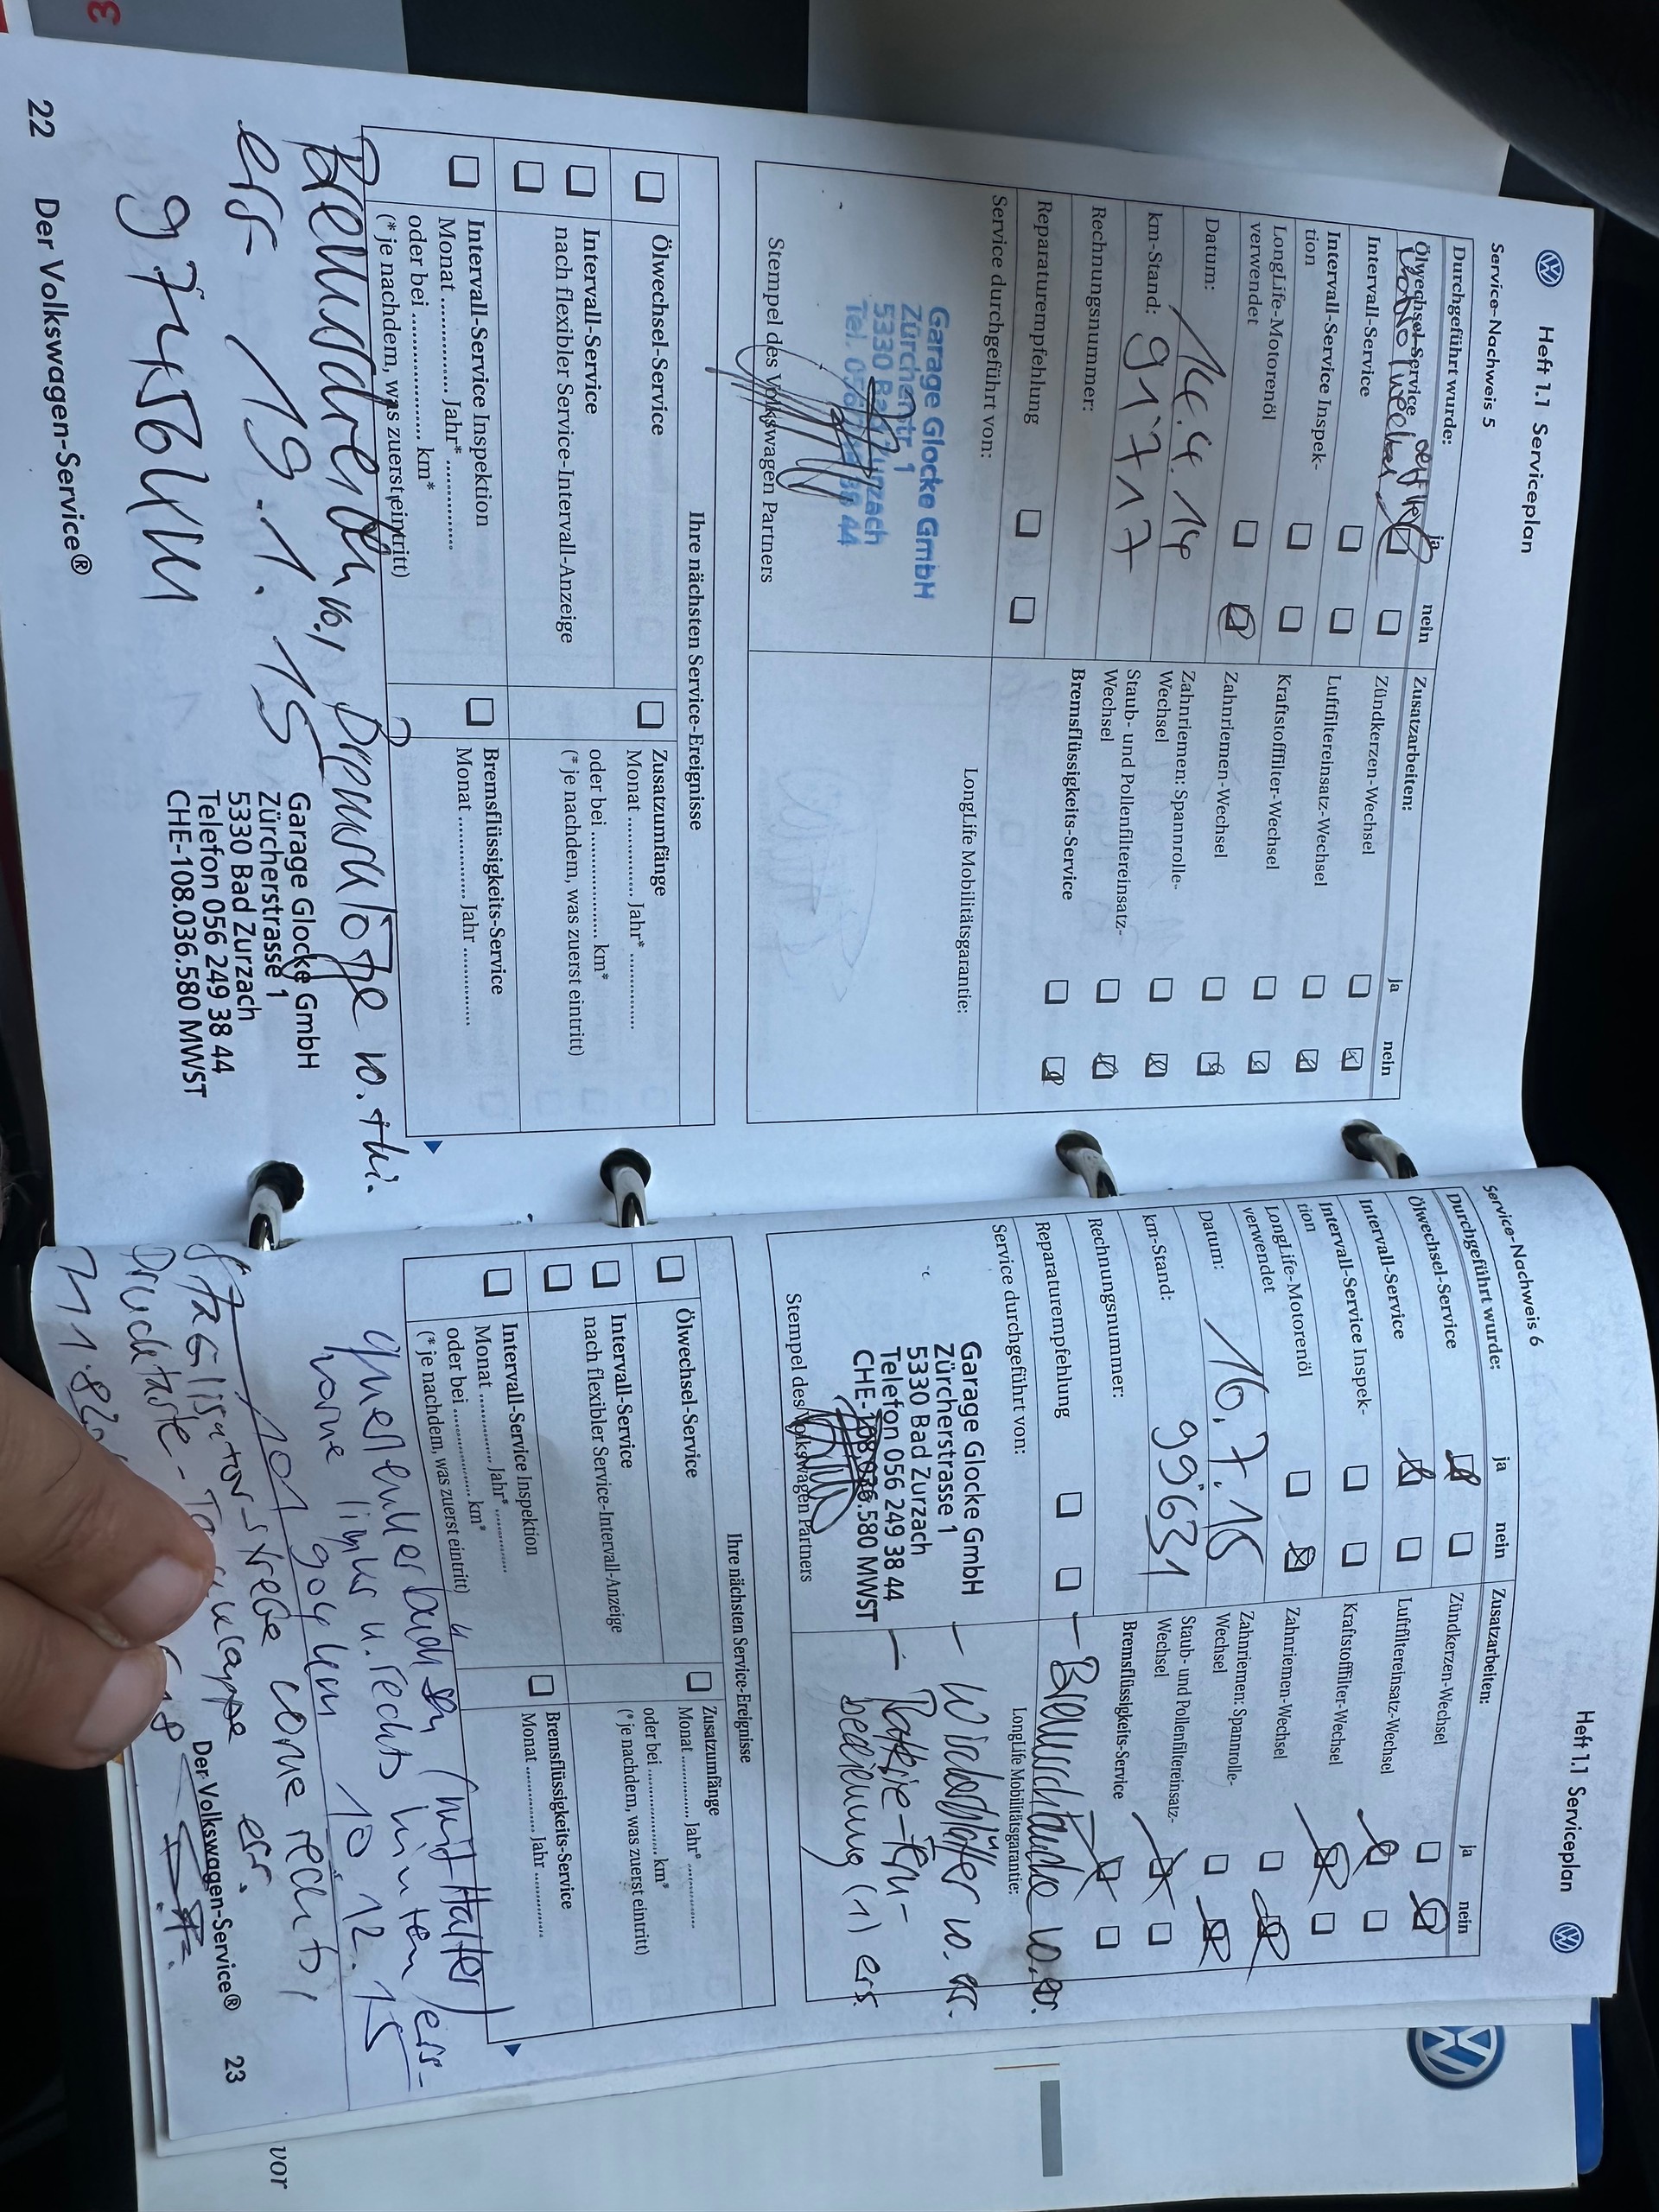 Heft 1.1 Serviceplan
Service-Nachweis 5
Durchgeführt wurde:
ja
nein
Ölwechsel-Service
Intervall-Service
Intervall-Service Inspek-
tion
LongLife-Motorenöl
verwendet
Datum: 14.4.14
km-Stand: 91'717
Rechnungsnummer:
Reparaturempfehlung
Service durchgeführt von:
Garage Glocke GmbH
Zürcherstr. 1
5330 Bad Zurzach
Tel. 056 44
Stempel des Volkswagen Partners
Zusatzarbeiten:
ja
nein
Zündkerzen-Wechsel
Luftfiltereinsatz-Wechsel
Kraftstofffilter-Wechsel
Zahnriemen-Wechsel
Zahnriemen: Spannrolle-
Wechsel
Staub- und Pollenfiltereinsatz-
Wechsel
Bremsflüssigkeits-Service
LongLife Mobilitätsgarantie:
Ihre nächsten Service-Ereignisse
Ölwechsel-Service
Intervall-Service
nach flexibler Service-Intervall-Anzeige
Intervall-Service Inspektion
Monat ............... Jahr* ...............
oder bei .................. km*
(* je nachdem, was zuerst eintritt)
Zusatzumfänge
Monat ............ Jahr* ...............
oder bei .................. km*
(* je nachdem, was zuerst eintritt)
Bremsflüssigkeits-Service
Monat ............ Jahr ...............
ers. 19.1.15
97'456 km
Garage Glocke GmbH
Zürcherstrasse 1
5330 Bad Zurzach
Telefon 056 249 38 44
CHE-108.036.580 MWST
22 Der Volkswagen-Service®
Heft 1.1 Serviceplan
Service-Nachweis 6
Durchgeführt wurde:
ja
nein
Ölwechsel-Service
Intervall-Service
Intervall-Service Inspek-
tion
LongLife-Motorenöl
verwendet
Datum: 16.7.15
km-Stand: 99'631
Rechnungsnummer:
Reparaturempfehlung
Service durchgeführt von:
Garage Glocke GmbH
Zürcherstrasse 1
5330 Bad Zurzach
Telefon 056 249 38 44
CHE-108.036.580 MWST
Stempel des Volkswagen Partners
Zusatzarbeiten:
ja
nein
Zündkerzen-Wechsel
Luftfiltereinsatz-Wechsel
Kraftstofffilter-Wechsel
Zahnriemen-Wechsel
Zahnriemen: Spannrolle-
Wechsel
Staub- und Pollenfiltereinsatz-
Wechsel
Bremsflüssigkeits-Service
LongLife Mobilitätsgarantie:
- Bremsschläuche vo. er.
- Wischblätter vo. er.
bedienung (1) ers.
Ihre nächsten Service-Ereignisse
Ölwechsel-Service
Intervall-Service
nach flexibler Service-Intervall-Anzeige
Intervall-Service Inspektion
Monat ............... Jahr* ...............
oder bei .................. km*
(* je nachdem, was zuerst eintritt)
Zusatzumfänge
Monat ............ Jahr* ...............
oder bei .................. km*
(* je nachdem, was zuerst eintritt)
Bremsflüssigkeits-Service
Monat ............ Jahr ...............
Querlenkerbuchsen (mit Halter)
vorne links u. rechts hinten ers-
101'904 km 10.12.15
Der Volkswagen-Service® 23
vor